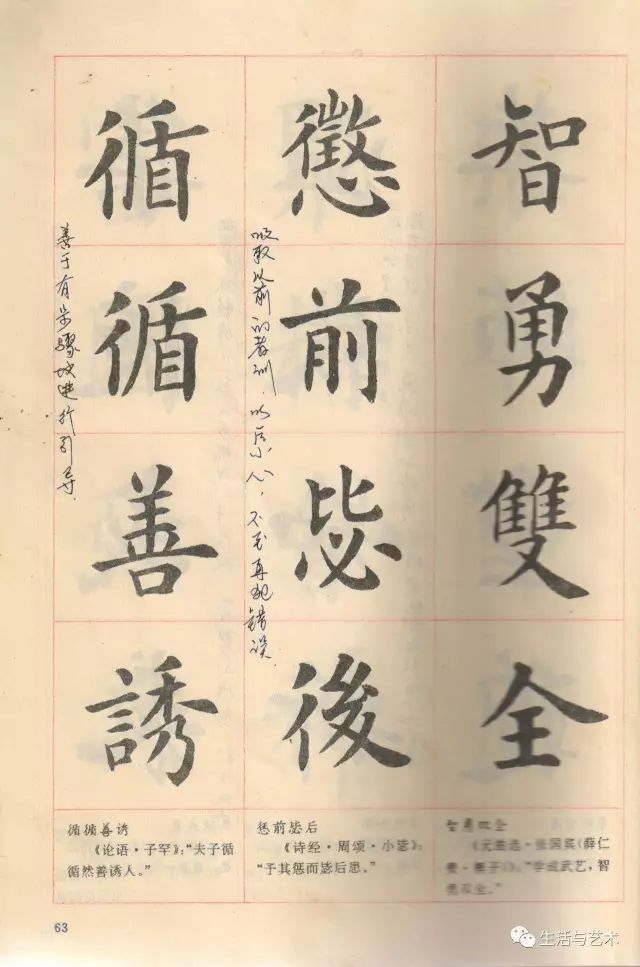 智勇雙全
懲前毖後
吸取从前的教训，以后小心，不至再犯错误
循循善誘
善于有步骤地进行引导.
智勇双全
《元曲选·张国宾〈薛仁
贵·楔子〉》：“学成武艺，智
勇双全。”
惩前毖后
《诗经·周颂·小毖》：
“予其惩而毖后患。”
循循善诱
《论语·子罕》：“夫子循
循然善诱人。”
63
生活与艺术